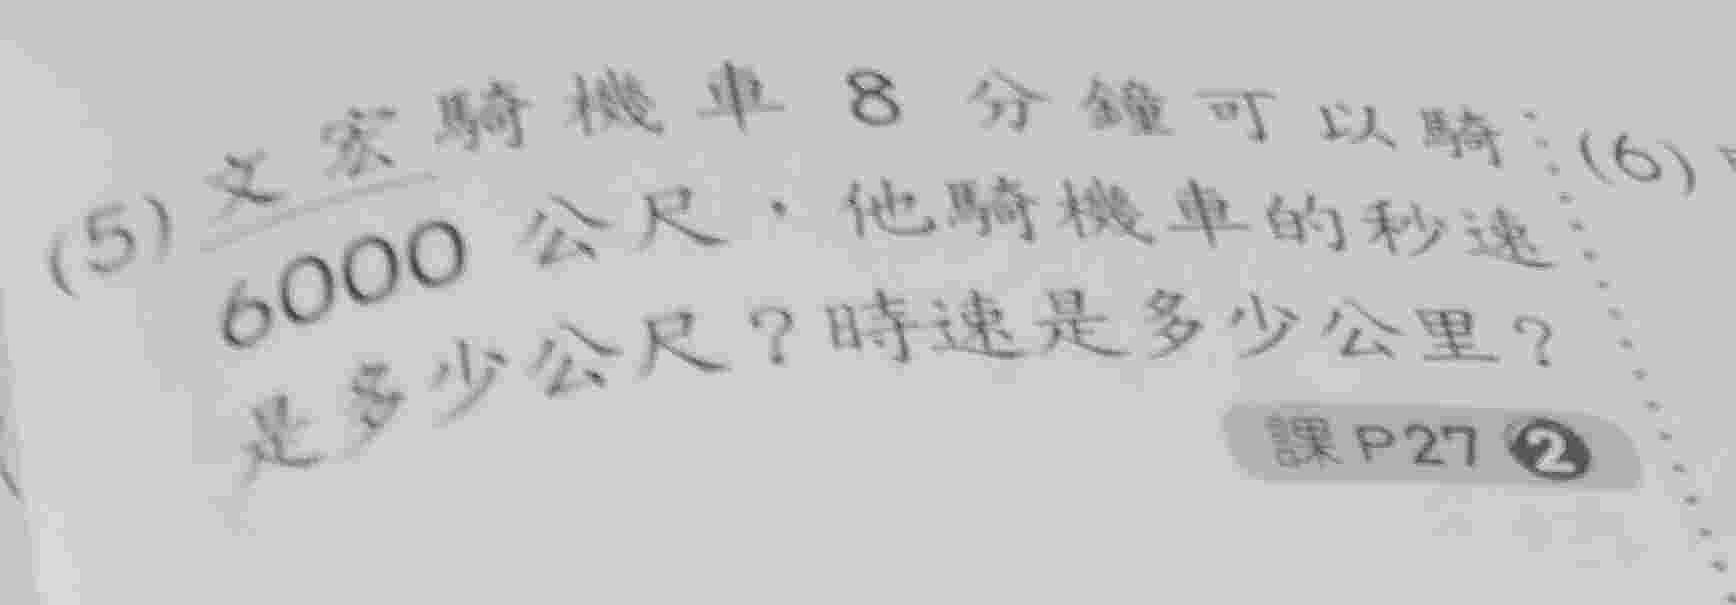 (5) 文宏騎機車 8 分鐘可以騎
6000 公尺，他騎機車的秒速
是多少公尺？時速是多少公里？
課P27 ❷
(6)